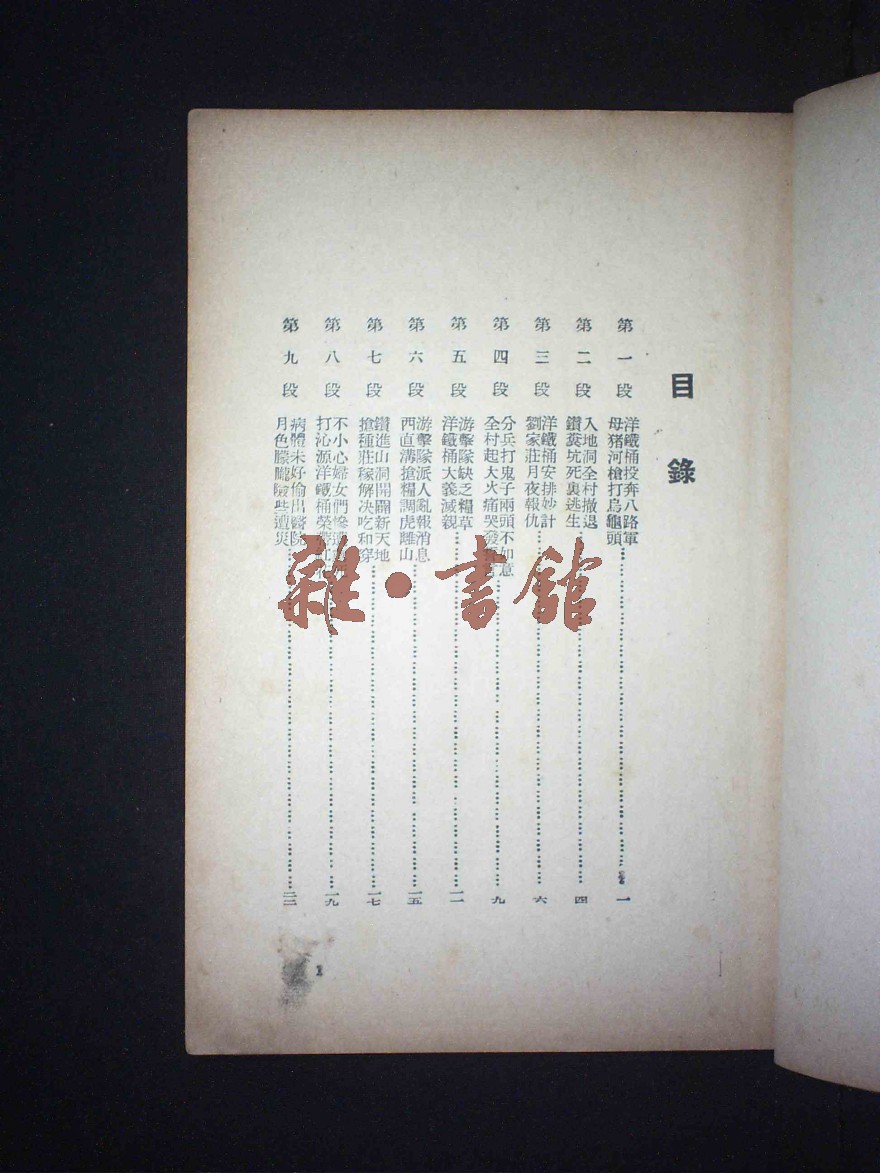 目錄
第一段
洋鐵桶投奔八路軍
母猪河槍打烏龜頭
一
第二段
入地洞全村撤退
鑽糞坑死裏逃生
四
第三段
洋鐵桶安排妙計
劉家莊月夜報仇
六
第四段
分兵打鬼子兩頭不如意
全村起大火痛哭
九
第五段
游擊隊缺乏糧草
洋鐵桶大義滅親
一一
第六段
游擊隊派人亂報消息
西直溝搶糧調虎離山
一五
第七段
鑽進山洞開闢新天地
搶種莊稼解决吃和穿
一七
第八段
不小心婦女們慘
打沁源洋鐵桶榮
一九
第九段
病體未好偷出醫院
月色朦朧險些遭災
二二
1
雜·書館